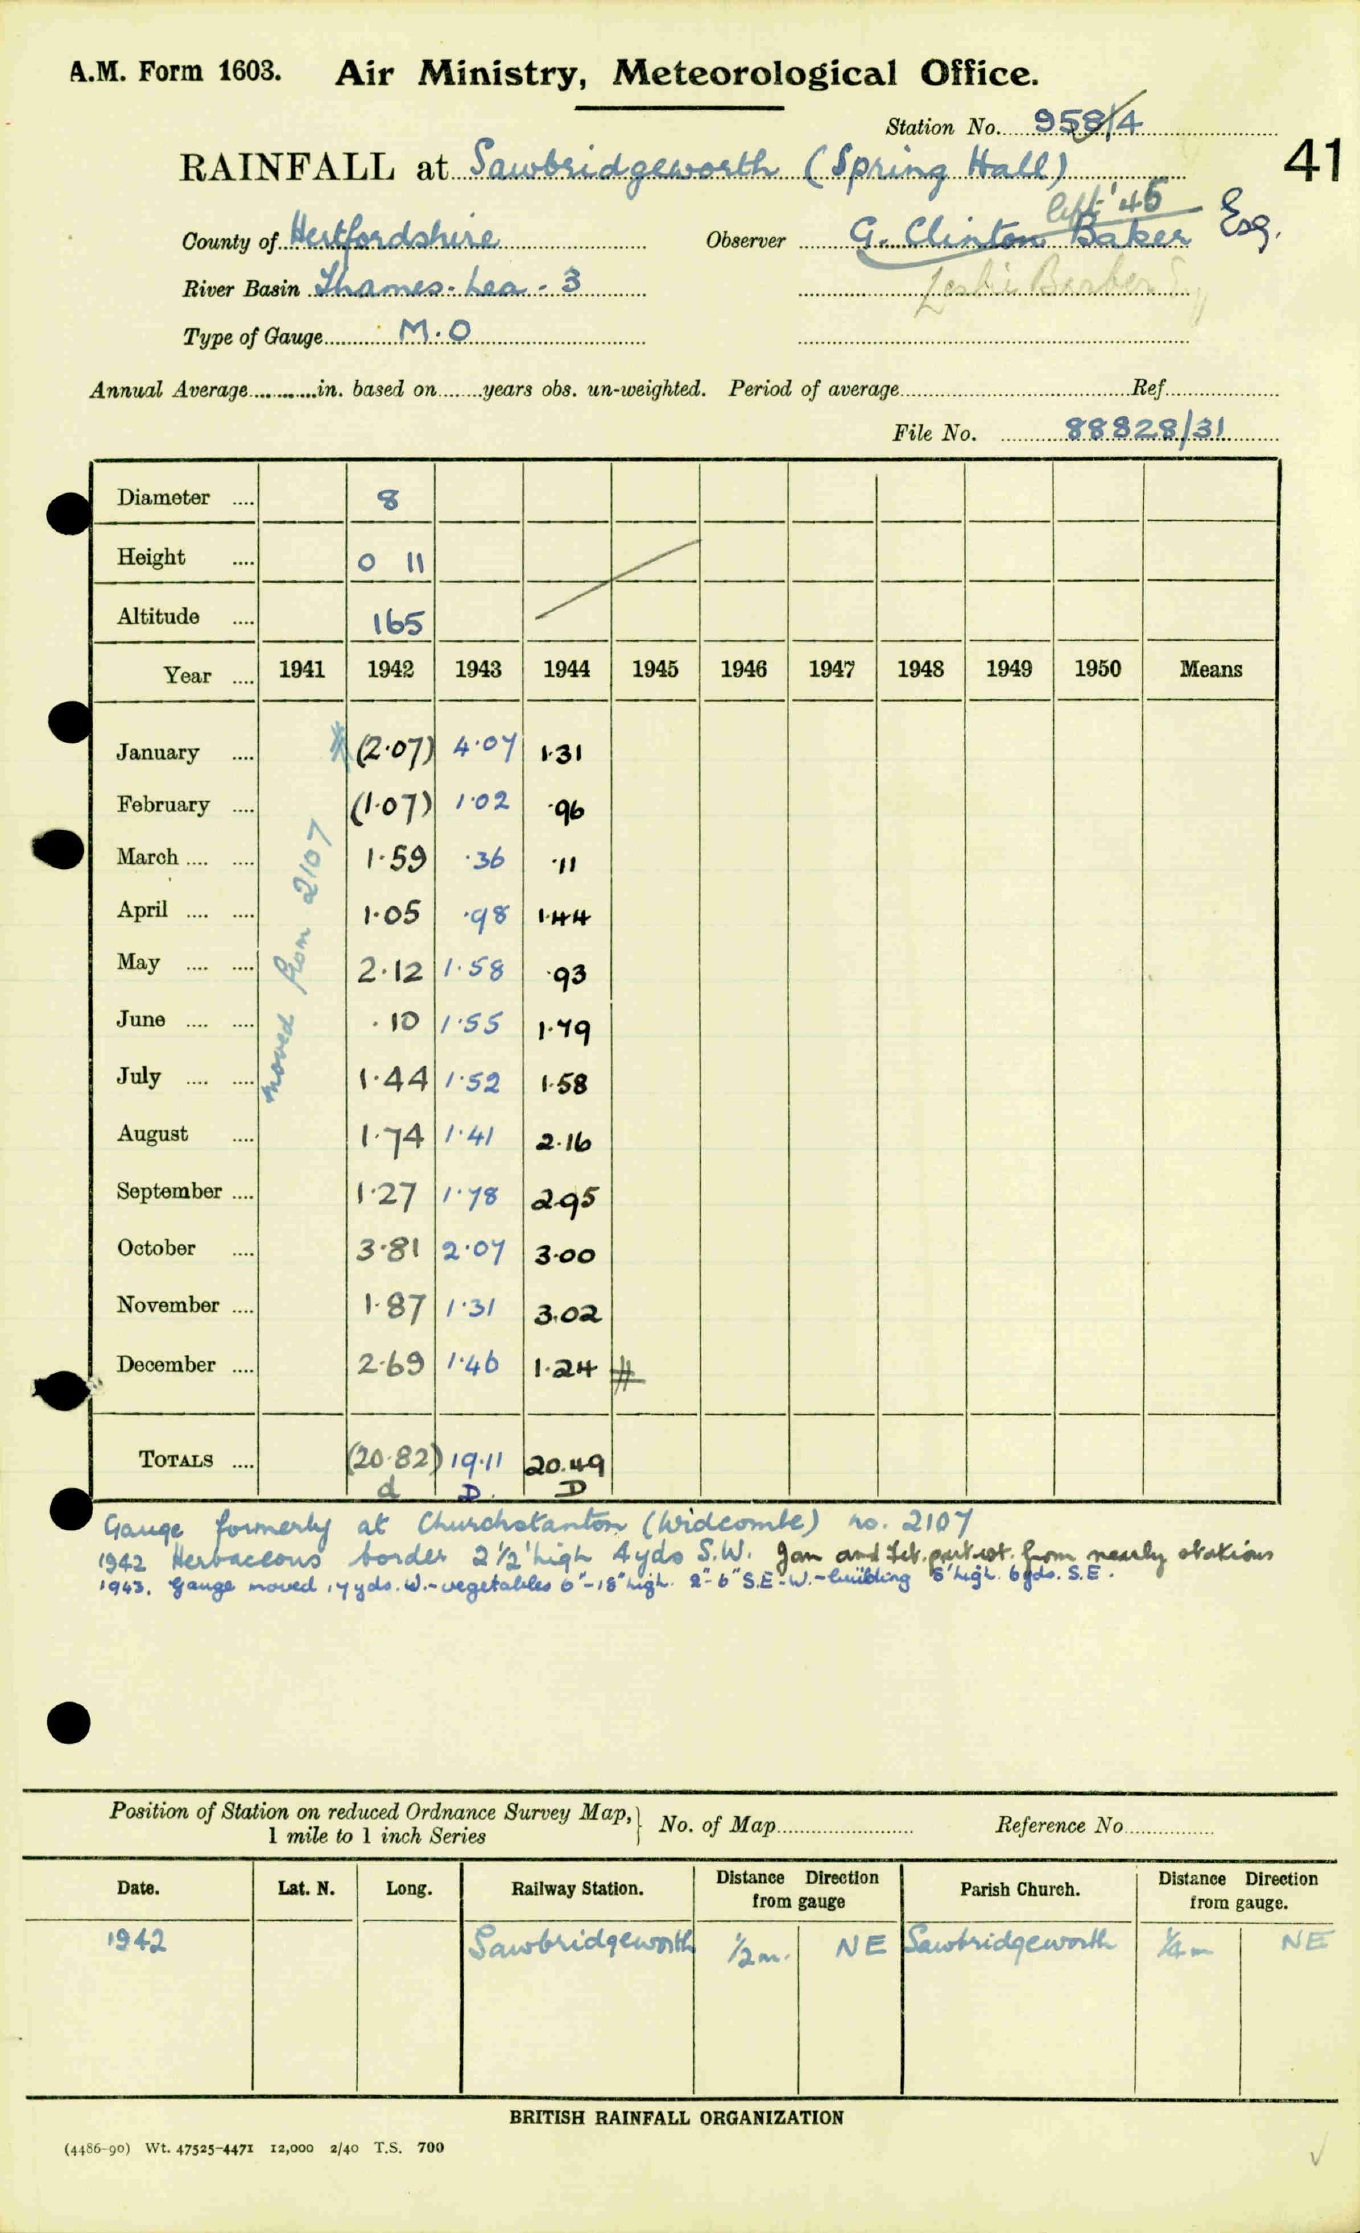 A.M. Form 1603. Air Ministry, Meteorological Office.
Station No. 958/4
RAINFALL at Sawbridgeworth (Spring Hall)
41
left '45
County of Hertfordshire Observer G. Clinton Baker Esq.
River Basin Thames-Lea-3 Leslie Barber
Type of Gauge M.O
Annual Average in. based on years obs. un-weighted. Period of average Ref
File No. 88828/31
Diameter .... 8
Height .... 0 11
Altitude .... 165
Year .... 1941 1942 1943 1944 1945 1946 1947 1948 1949 1950 Means
moved from 2107
January .... (2·07) 4·07 1·31
February .... (1·07) 1·02 ·96
March .... .... 1·59 ·36 ·11
April .... .... 1·05 ·98 1·44
May .... .... 2·12 1·58 ·93
June .... .... ·10 1·55 1·79
July .... .... 1·44 1·52 1·58
August .... 1·74 1·41 2·16
September .... 1·27 1·78 2·95
October .... 3·81 2·07 3·00
November .... 1·87 1·31 3.02
December .... 2·69 1·46 1·24 #
TOTALS .... (20·82) 19·11 20.49
d D. D
Gauge formerly at Churchstanton (Widcombe) no. 2107
1942 Herbaceous border 2½' high 4yds S.W. Jan and Feb. part est. from nearby stations
1943. Gauge moved 17yds. W.-vegetables 6"-18" high. 2"-6" S.E-W.-building 8' high. 6yds. S.E.
Position of Station on reduced Ordnance Survey Map, } No. of Map Reference No
1 mile to 1 inch Series
Date. Lat. N. Long. Railway Station. Distance Direction from gauge Parish Church. Distance Direction from gauge.
1942 Sawbridgeworth ½m. NE Sawbridgeworth ¼m NE
BRITISH RAINFALL ORGANIZATION
(4486-90) Wt. 47525-4471 12,000 2/40 T.S. 700